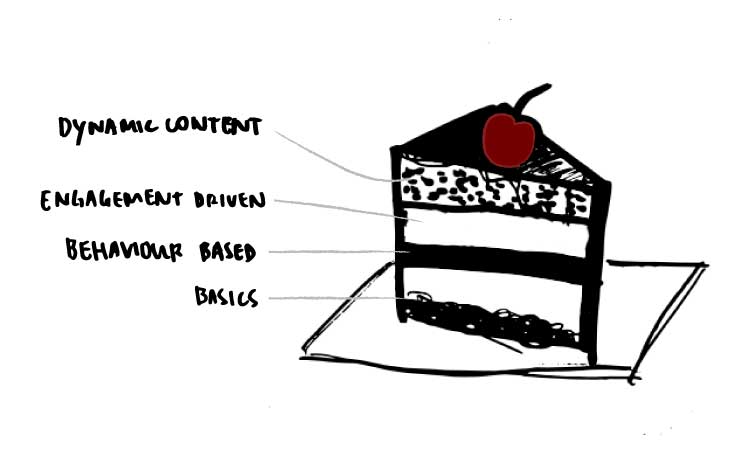 DYNAMIC CONTENT
ENGAGEMENT DRIVEN
BEHAVIOUR BASED
BASICS